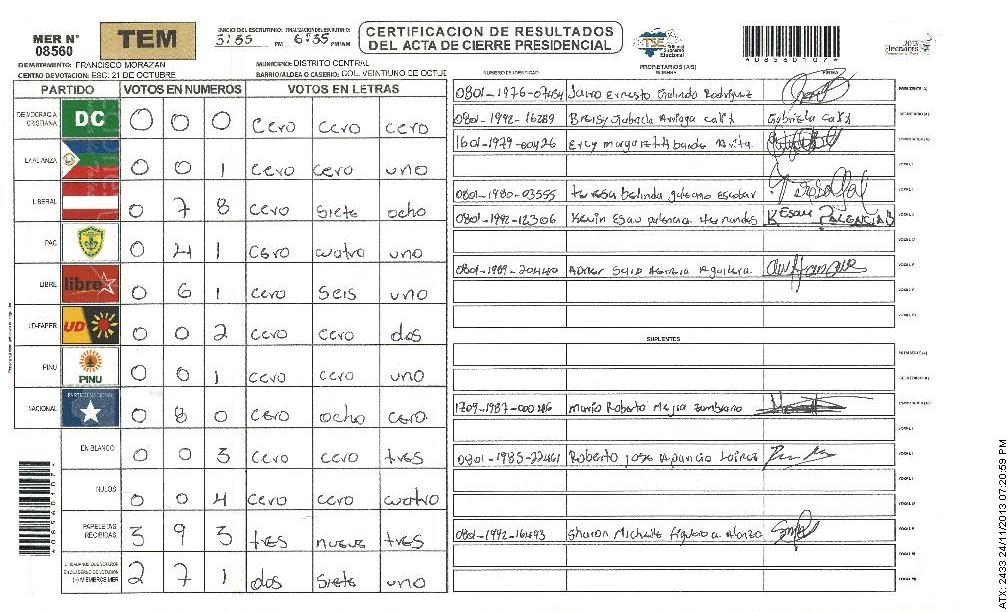 MER N° 08560
TEM
INICIO DEL ESCRUTINIO: FINALIZACION DEL ESCRUTINIO:
PM 6:35 PM/AM
CERTIFICACION DE RESULTADOS
DEL ACTA DE CIERRE PRESIDENCIAL
TSE Tribunal Supremo Electoral
*08560107*
2013 Elecciones
DEPARTAMENTO: FRANCISCO MORAZAN
MUNICIPIO: DISTRITO CENTRAL
CENTRO DE VOTACION: ESC. 21 DE OCTUBRE
BARRIO/ALDEA O CASERIO: COL. VEINTIUNO DE OCTUE
PARTIDO VOTOS EN NUMEROS VOTOS EN LETRAS
DEMOCRACIA CRISTIANA DC 0 0 0 cero cero cero
ALIANZA 0 0 1 cero cero uno
LIBERAL 0 7 8 cero siete ocho
PAC 0 4 1 cero cuatro uno
LIBRE libre 0 6 1 cero seis uno
UD-FAPER UD 0 0 2 cero cero dos
PINU PINU 0 0 1 cero cero uno
NACIONAL PARTIDO NACIONAL 0 8 0 cero ocho cero
EN BLANCO 0 0 3 cero cero tres
NULOS 0 0 4 cero cero cuatro
PAPELETAS RECIBIDAS 3 9 3 tres nueve tres
CIUDADANOS QUE VOTARON EN CUADERNO DE VOTACION (+) MIEMBROS MER 2 7 1 dos siete uno
*08560107*
NUMERO DE IDENTIDAD PROPIETARIOS (AS) NOMBRE FIRMA
Jairo Ernesto Galindo Rodriguez PRESIDENTE (A)
0801-1992-16289 Gabriela SECRETARIO (A)
1601-1979-00426 Ercy Margaret
VOCAL I
0801-1980-03555 Teresa Belinda galeano escobar
0801-1992-12306 Kevin Esau Palencia Hernandes K ESAU PALENCIA
VOCAL IV
0801-1989-20440 Abner Aguilera
SUPLENTES
PRESIDENTE (A)
SECRETARIO (A)
1709-1987-00046 Mario Roberto Mejia Zambrano
0801-1985-22461 Roberto Jose Aparicio
Sharon Michelle Figueroa Alonzo
ATX: 2433 24/11/2013 07:20:59 PM